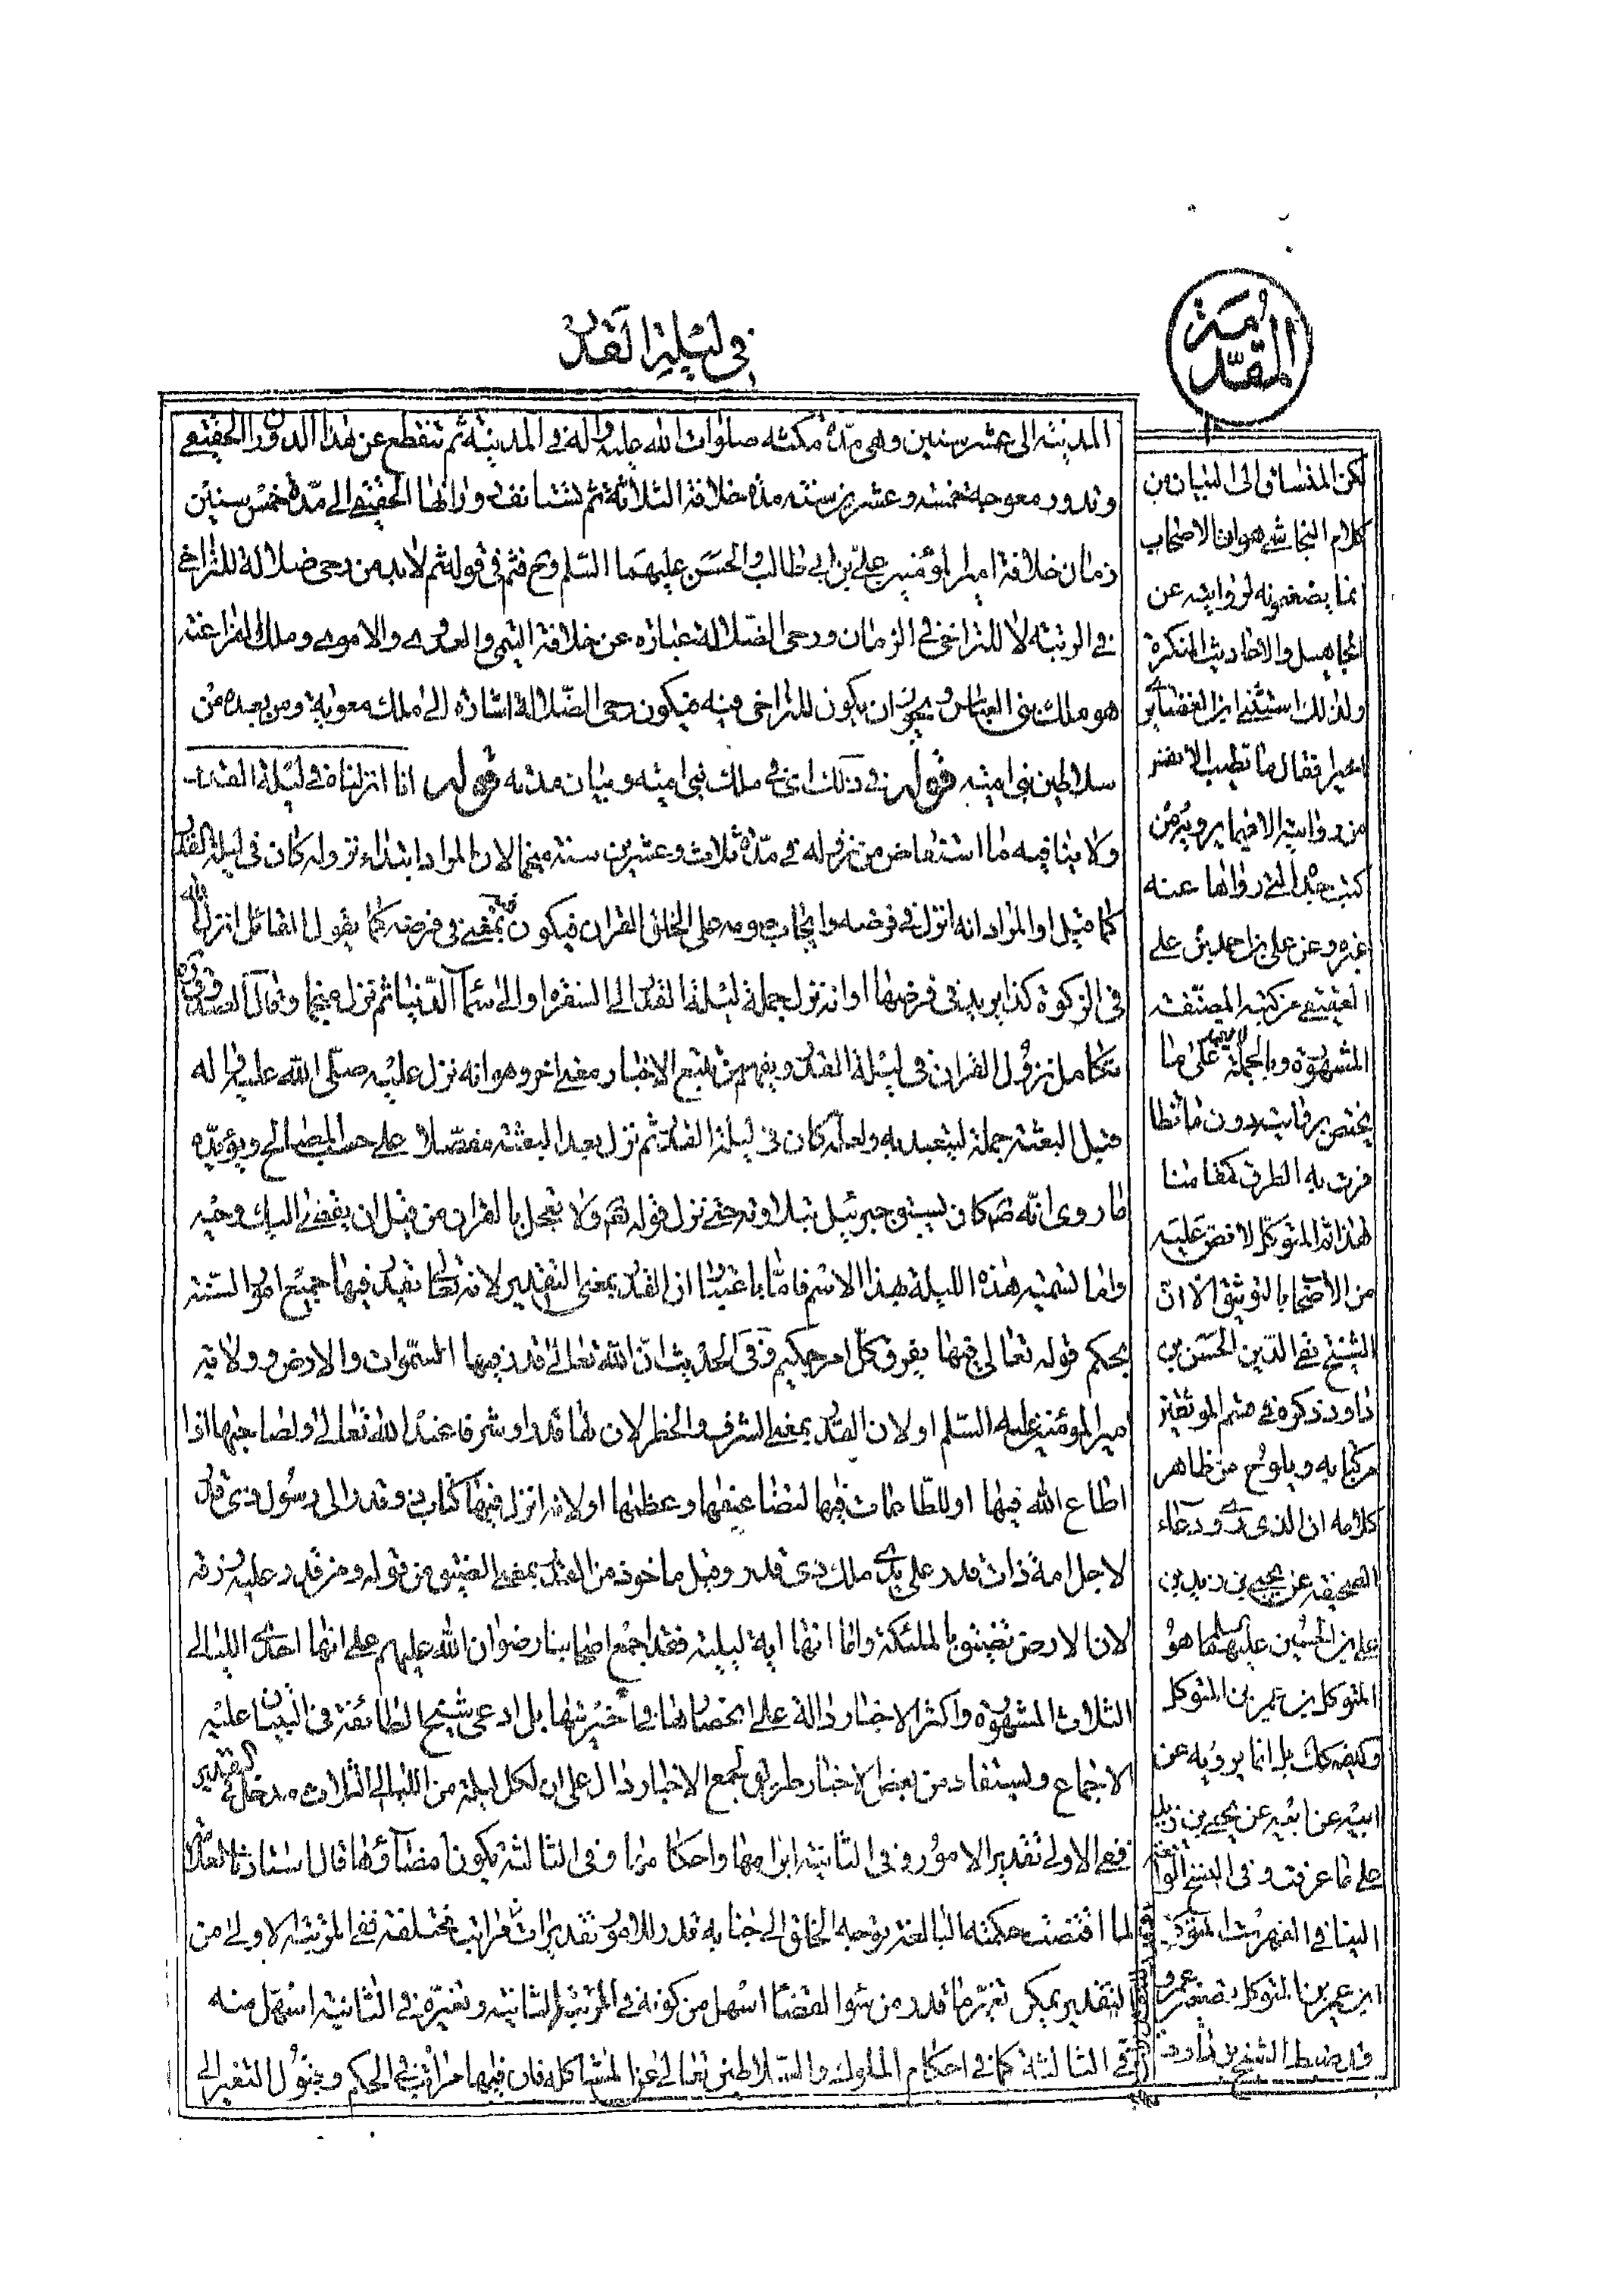 المقدمة
في ليلة القدر
المدينة الى عشر سنين وهى مدة مكثه صلوات الله عليه واله في المدينة ثم تنقطع عن هذا الدوران الحقيقي
وتدور معوجة خمسة وعشرين سنة مدة خلافة الثلاثة ثم تستانف دورانها الحقيقي الى مدة خمس سنين
زمان خلافة امير المؤمنين علي بن ابي طالب والحسن عليهما السلم وح فثم في قوله ثم لابد من رحى ضلالة للتراخي
في الرتبة لا للتراخي في الزمان ورحى الضلالة عبارة عن خلافة التيمي والعدوي والاموي وملك الفراعنة
هو ملك بني العباس ويجوز ان يكون للتراخي فيه فيكون رحى الضلالة اشارة الى ملك معوية ومن بعده من
سلاطين بني امية قوله في ذلك اي في ملك بني امية وبيان مدته قوله انا انزلناه في ليلة القدر
ولا ينافيه ما استفاض من نزوله في مدة ثلاث وعشرين سنة منجما لان المراد ابتداء نزوله كان في ليلة القدر
كما قيل او المراد انه انزل في فرضه وايجاب صومه على الخلق القران فيكون فيه بمعنى في فرضه كما يقول القائل انزل الله
في الزكوة كذا يريد في فرضها او انه نزل جملة ليلة القدر الى السفرة او الى سماء الدنيا ثم نزل منجما وقال الصدوق ره
تكامل نزول القران في ليلة القدر ويفهم من تتبع الاخبار معنى اخر وهو انه نزل عليه صلى الله عليه واله
قبل البعثة جملة ليتعبد به ولعله كان في ليلة القدر ثم نزل بعد البعثة مفصلا على حسب المصالح ويؤيده
ما روى انه ص كان يسبق جبرئيل بتلاوته حتى نزل قوله تعم ولا تعجل بالقران من قبل ان يقضى اليك وحيه
واما تسميه هذه الليلة بهذا الاسم فاما باعتبار ان القدر بمعنى التقدير لانه تعالى يقدر فيها جميع امور السنة
بحكم قوله تعالى فيها يفرق كل امر حكيم وفي الحديث ان الله تعالى قدر فيها السموات والارض وولاية
امير المؤمنين عليه السلم او لان القدر بمعنى الشرف والخطر لان لها قدرا وشرفا عند الله تعالى ولصاحبها اذا
اطاع الله فيها او للطاعات فيها لتضاعفها وعظمها او لانه انزل فيها كتاب ذو قدر الى رسول ذي قدر
لاجل امة ذات قدر على يدي ملك ذي قدر وقيل ماخوذ من القدر بمعنى الضيق من قوله ومن قدر عليه رزقه
لان الارض تضيق بالملئكة واما انها اية ليلة فقد اجمع اصحابنا رضوان الله عليهم على انها احدى الليالي
الثلاث المشهورة واكثر الاخبار دالة على انحصارها في اخيرتها بل ادعى شيخ الطائفة في التبيان عليه
الاجماع ويستفاد من بعض الاخبار طريق لجمع الاخبار دال على ان لكل ليلة من الليالي الثلاث مدخلا في التقدير
ففي الاولى تقدير الامور وفي الثانية ابرامها واحكامها وفي الثالثة يكون امضاؤها قال استاذنا العلامة
لما اقتضت حكمته البالغة توجه الخلق الى جنابه قدر للامور تقديرات في مراتب مختلفة ففي المرتبة الاولى من
التقدير يمكن تغير ما قدر من سوء القضا اسهل من كونه في المرتبة الثانية وتغيره في الثانية اسهل منه
في الثالثة كما في احكام الملوك والسلاطين تعالى عن المشاكلة فان فيها مراتب في الحكم وقبول التغير الى
لكن المنساق الى البيان من
كلام النجاشي هو ان الاصحاب
انما يضعفونه لروايته عن
المجاهيل والاحاديث المنكرة
ولذلك استثنى ابن الغضائري
اخيرا فقال ما تطيب الانفس
من روايته الا فيما يرويه من
كتب جده التي رواها عنه
غيره وعن علي بن احمد بن علي
العقيقي من كتبه المصنفة
المشهورة وبالجملة على ما
يختص بروايته دون ما تظا
فرت به الطرق كمقامنا
هذا ثم المتوكل لا نص عليه
من الاصحاب بالتوثيق الا ان
الشيخ تقي الدين الحسن بن
داود ذكره في قسم الموثقين
من كتابه ويلوح من ظاهر
كلامه ان الذي روى دعاء
الصحيفة عن يحيى بن زيد بن
علي بن الحسين عليهما السلم هو
المتوكل بن عمير بن المتوكل
وليس كك بل انما يرويه عن
ابيه عن ابيه عن يحيى بن زيد
على ما عرفت وفي النسخ الواقعة
الينا في الفهرست المتوكل
ابن عمير بن المتوكل
وقد ضبط الشيخ بن داود